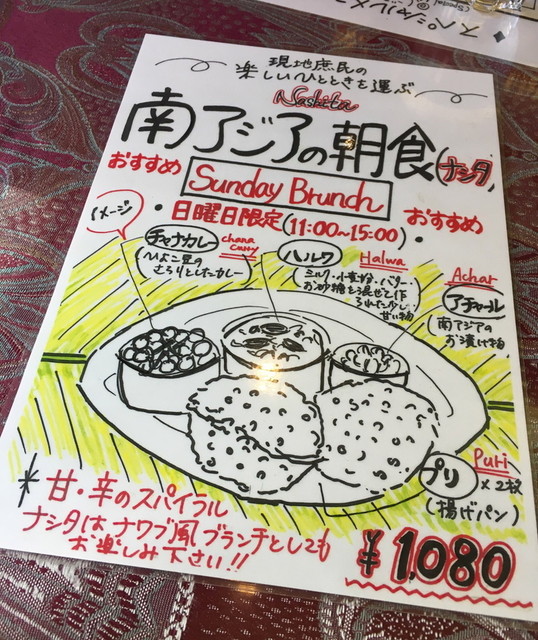 スペシャルメ
現地庶民の
楽しいひとときを運ぶ
Nashita
南アジアの朝食(ナシタ)
おすすめ
Sunday Brunch
おすすめ
・日曜日限定(11:00~15:00)・
イメージ
チャナカレー
chana curry
ひよこ豆の
さらりとしたカレー
ハルワ
Halwa
ミルク・小麦粉・バター・
お砂糖を混ぜて作
られた少し
甘い物
Achar
アチャール
南アジアの
お漬け物
Puri
プリ ×2枚
(揚げパン)
*甘・辛のスパイラル
ナシタはナワブ風ブランチとしても
お楽しみ下さい!!
¥1,080